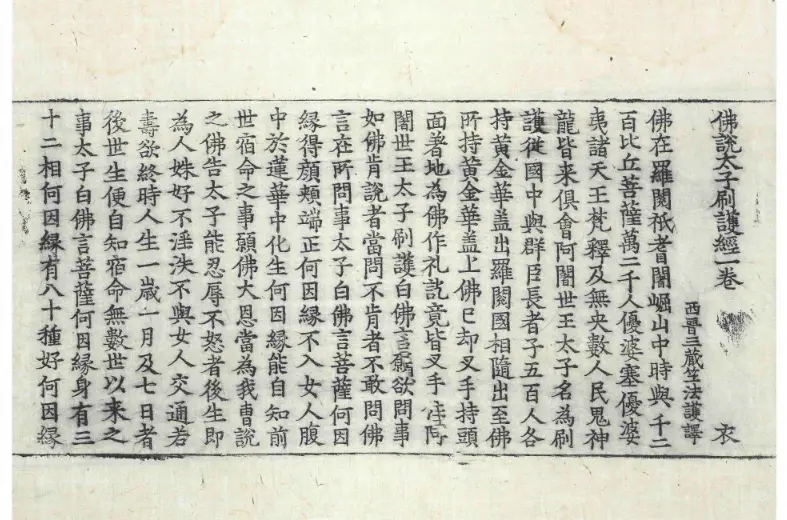 佛說太子刷護經一卷 衣
西晋三藏竺法護譯
佛在羅閱祇耆闍崛山中時與千二
百比丘菩薩萬二千人優婆塞優婆
夷諸天王梵釋及無央數人民鬼神
龍皆来俱會阿闍世王太子名為刷
護從國中與群臣長者子五百人各
持黄金華盖出羅閱國相隨出至佛
所持黄金華盖上佛已却叉手持頭
面著地為佛作礼訖竟皆叉手住阿
闍世王太子刷護白佛言願欲問事
如佛肯說者當問不肯者不敢問佛
言在所問事太子白佛言菩薩何因
縁得顏頰端正何因縁不入女人腹
中於蓮華中化生何因縁能自知前
世宿命之事願佛大恩當為我曹說
之佛告太子能忍辱不怒者後生即
為人姝好不淫泆不與女人交通若
壽欲終時人生一歳一月及七日者
後世生便自知宿命無數世以来之
事太子白佛言菩薩何因縁身有三
十二相何因縁有八十種好何因縁